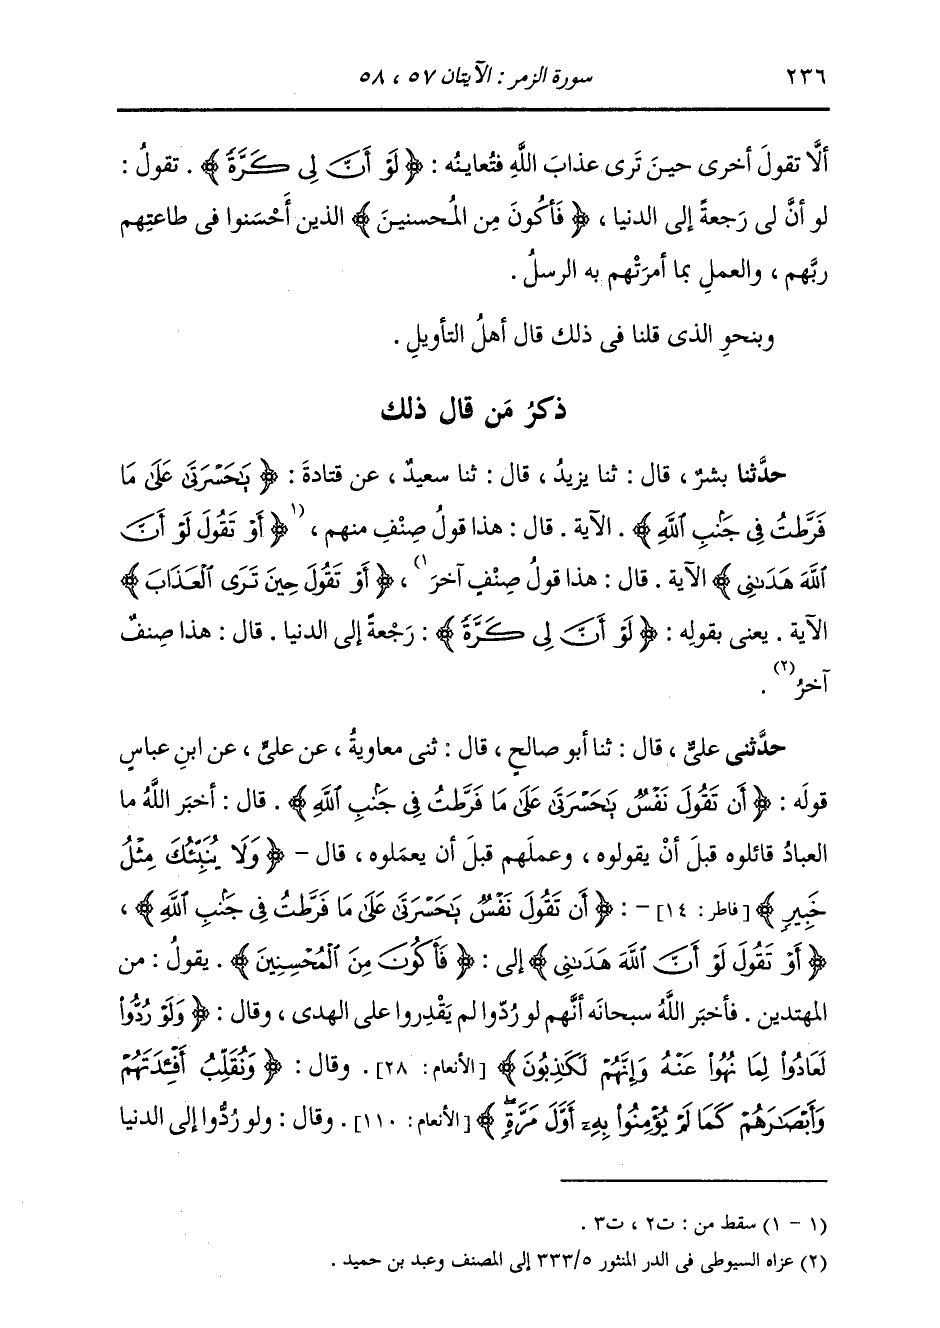 ٢٣٦ سورة الزمر : الآيتان ٥٧ ، ٥٨
ألَّا تقولَ أخرى حينَ تَرى عذابَ اللَّهِ فتُعاينُه : ﴿ لَوْ أَنَّ لِى كَرَّةً ﴾ . تقولُ :
لو أنَّ لى رَجعةً إلى الدنيا ، ﴿ فَأكُونَ مِن المُحسنينَ ﴾ الذين أَحْسَنوا فى طاعتِهم
ربَّهم ، والعملِ بما أمرَتْهم به الرسلُ .
وبنحوِ الذى قلنا فى ذلك قال أهلُ التأويلِ .
ذكرُ مَن قال ذلك
حدَّثنا بشرٌ ، قال : ثنا يزيدُ ، قال : ثنا سعيدٌ ، عن قتادةَ : ﴿ بَحَسْرَتَى عَلَىٰ مَا
فَرَّطتُ فِى جَنۢبِ ٱللَّهِ ﴾ . الآية . قال : هذا قولُ صِنْفٍ منهم ، (١﴿ أَوْ تَقُولَ لَوْ أَنَّ
ٱللَّهَ هَدَىٰنِى ﴾ الآية . قال : هذا قولُ صِنْفٍ آخرَ١) ، ﴿ أَوْ تَقُولَ حِينَ تَرَى ٱلْعَذَابَ ﴾
الآية . يعنى بقولِه : ﴿ لَوْ أَنَّ لِى كَرَّةً ﴾ : رَجْعةً إلى الدنيا . قال : هذا صِنفٌ
آخرُ(٢) .
حدَّثنى علىٌّ ، قال : ثنا أبو صالحٍ ، قال : ثنى معاويةُ ، عن علىٍّ ، عن ابنِ عباسٍ
قولَه : ﴿ أَن تَقُولَ نَفْسٌ يَٰحَسْرَتَىٰ عَلَىٰ مَا فَرَّطتُ فِى جَنۢبِ ٱللَّهِ ﴾ . قال : أخبَر اللَّهُ ما
العبادُ قائلوه قبلَ أنْ يقولوه ، وعملَهم قبلَ أن يعمَلوه ، قال – ﴿ وَلَا يُنَبِّئُكَ مِثْلُ
خَبِيرٍ ﴾ [فاطر: ١٤] – : ﴿ أَن تَقُولَ نَفْسٌ يَٰحَسْرَتَىٰ عَلَىٰ مَا فَرَّطتُ فِى جَنۢبِ ٱللَّهِ ﴾ ،
﴿ أَوْ تَقُولَ لَوْ أَنَّ ٱللَّهَ هَدَىٰنِى ﴾ إلى : ﴿ فَأَكُونَ مِنَ ٱلْمُحْسِنِينَ ﴾ . يقولُ : من
المهتدين . فأخبَر اللَّهُ سبحانَه أنَّهم لو رُدّوا لم يَقْدِروا على الهدى ، وقال : ﴿ وَلَوْ رُدُّوا۟
لَعَادُوا۟ لِمَا نُهُوا۟ عَنْهُ وَإِنَّهُمْ لَكَٰذِبُونَ ﴾ [الأنعام: ٢٨] . وقال : ﴿ وَنُقَلِّبُ أَفْـِٔدَتَهُمْ
وَأَبْصَٰرَهُمْ كَمَا لَمْ يُؤْمِنُوا۟ بِهِۦٓ أَوَّلَ مَرَّةٍ ﴾ [الأنعام: ١١٠] . وقال : ولو رُدُّوا إلى الدنيا
(١ – ١) سقط من : ت٢ ، ت٣ .
(٢) عزاه السيوطى فى الدر المنثور ٣٣٣/٥ إلى المصنف وعبد بن حميد .